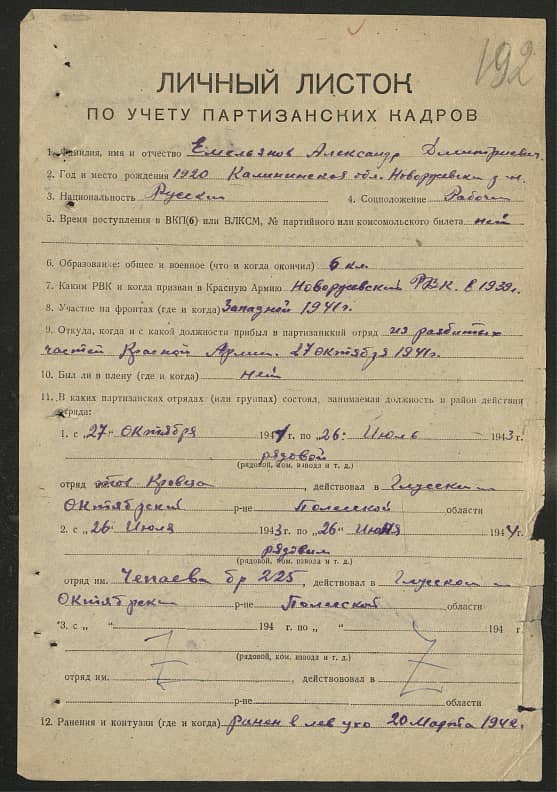 192
ЛИЧНЫЙ ЛИСТОК
ПО УЧЕТУ ПАРТИЗАНСКИХ КАДРОВ
1. Фамилия, имя и отчество Емельянов Александр Дмитриевич.
2. Год и место рождения 1920 Калининская обл. Новоружевски
3. Национальность Русский 4. Соцположение Рабочий
5. Время поступления в ВКП(б) или ВЛКСМ, № партийного или комсомольского билета нет
6. Образование: общее и военное (что и когда окончил) 6 кл.
7. Каким РВК и когда призван в Красную Армию Новоружевский РВК. в 1939г.
8. Участие на фронтах (где и когда) Западной 1941г.
9. Откуда, когда и с какой должности прибыл в партизанский отряд из разбитых
частей Красной Армии. 27 октября 1941г.
10. Был ли в плену (где и когда) нет
11. В каких партизанских отрядах (или группах) состоял, занимаемая должность и район действия
отряда:
1. с „27“ октября 1941 г. по „26“ Июль 1943 г.
рядовой
(рядовой, ком. взвода и т. д.)
отряд , действовал в Глусский и
Октябрьский р-не Полесской области
2. с „26“ Июля 1943 г. по „26“ Июня 1944 г.
рядовым
(рядовой, ком. взвода и т. д.)
отряд им. Чепаева бр 225, действовал в Глусской и
Октябрьски р-не Полесской области
3. с „ “ 194 г. по „ “ 194 г.
(рядовой, ком. взвода и т. д.)
отряд им. , действовал в
р-не области
12. Ранения и контузии (где и когда) ранен в лев ухо 20 Марта 1942г.